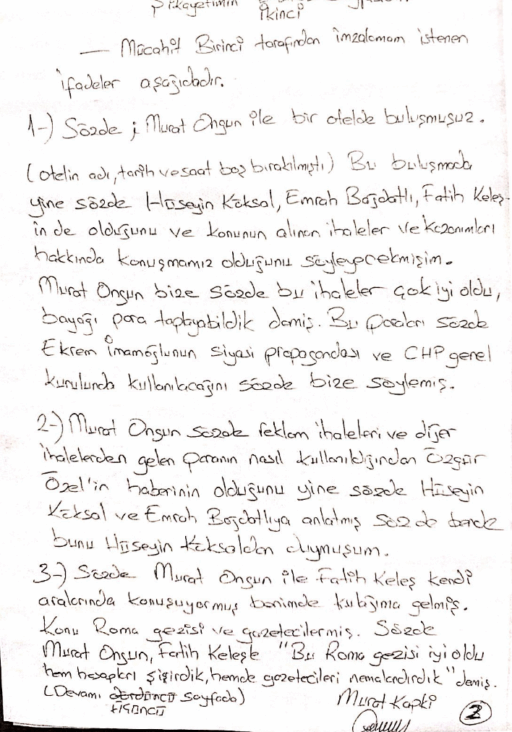 Şikayetimin İkinci
— Mücahit Birinci tarafından imzalamam istenen
ifadeler aşağıdadır.
1-) Sözde ; Murat Ongun ile bir otelde buluşmuşuz.
(otelin adı, tarih ve saat boş bırakılmıştı) Bu buluşmada
yine sözde Hüseyin Köksal, Emrah Bağdatlı, Fatih Keleş-
in de olduğunu ve konunun alınan ihaleler ve kazanımları
hakkında konuşmamız olduğunu söyleyecekmişim.
Murat Ongun bize sözde bu ihaleler çok iyi oldu,
bayağı para toplayabildik demiş. Bu paraları sözde
Ekrem İmamoğlunun siyasi propagandası ve CHP genel
kurulunda kullanılacağını sözde bize söylemiş.
2-) Murat Ongun sözde reklam ihaleleri ve diğer
ihalelerden gelen paranın nasıl kullanıldığından Özgür
Özel'in haberinin olduğunu yine sözde Hüseyin
Köksal ve Emrah Bağdatlıya anlatmış sözde bende
bunu Hüseyin Köksaldan duymuşum.
3-) Sözde Murat Ongun ile Fatih Keleş kendi
aralarında konuşuyormuş benimde kulağıma gelmiş.
Konu Roma gezisi ve gazetecilermiş. Sözde
Murat Ongun, Fatih Keleşle "Bu Roma gezisi iyi oldu
hem hesapları şişirdik, hemde gazetecileri nemalandırdık" demiş.
(Devamı dördüncü sayfada)
üçüncü
Murat Kapki
2